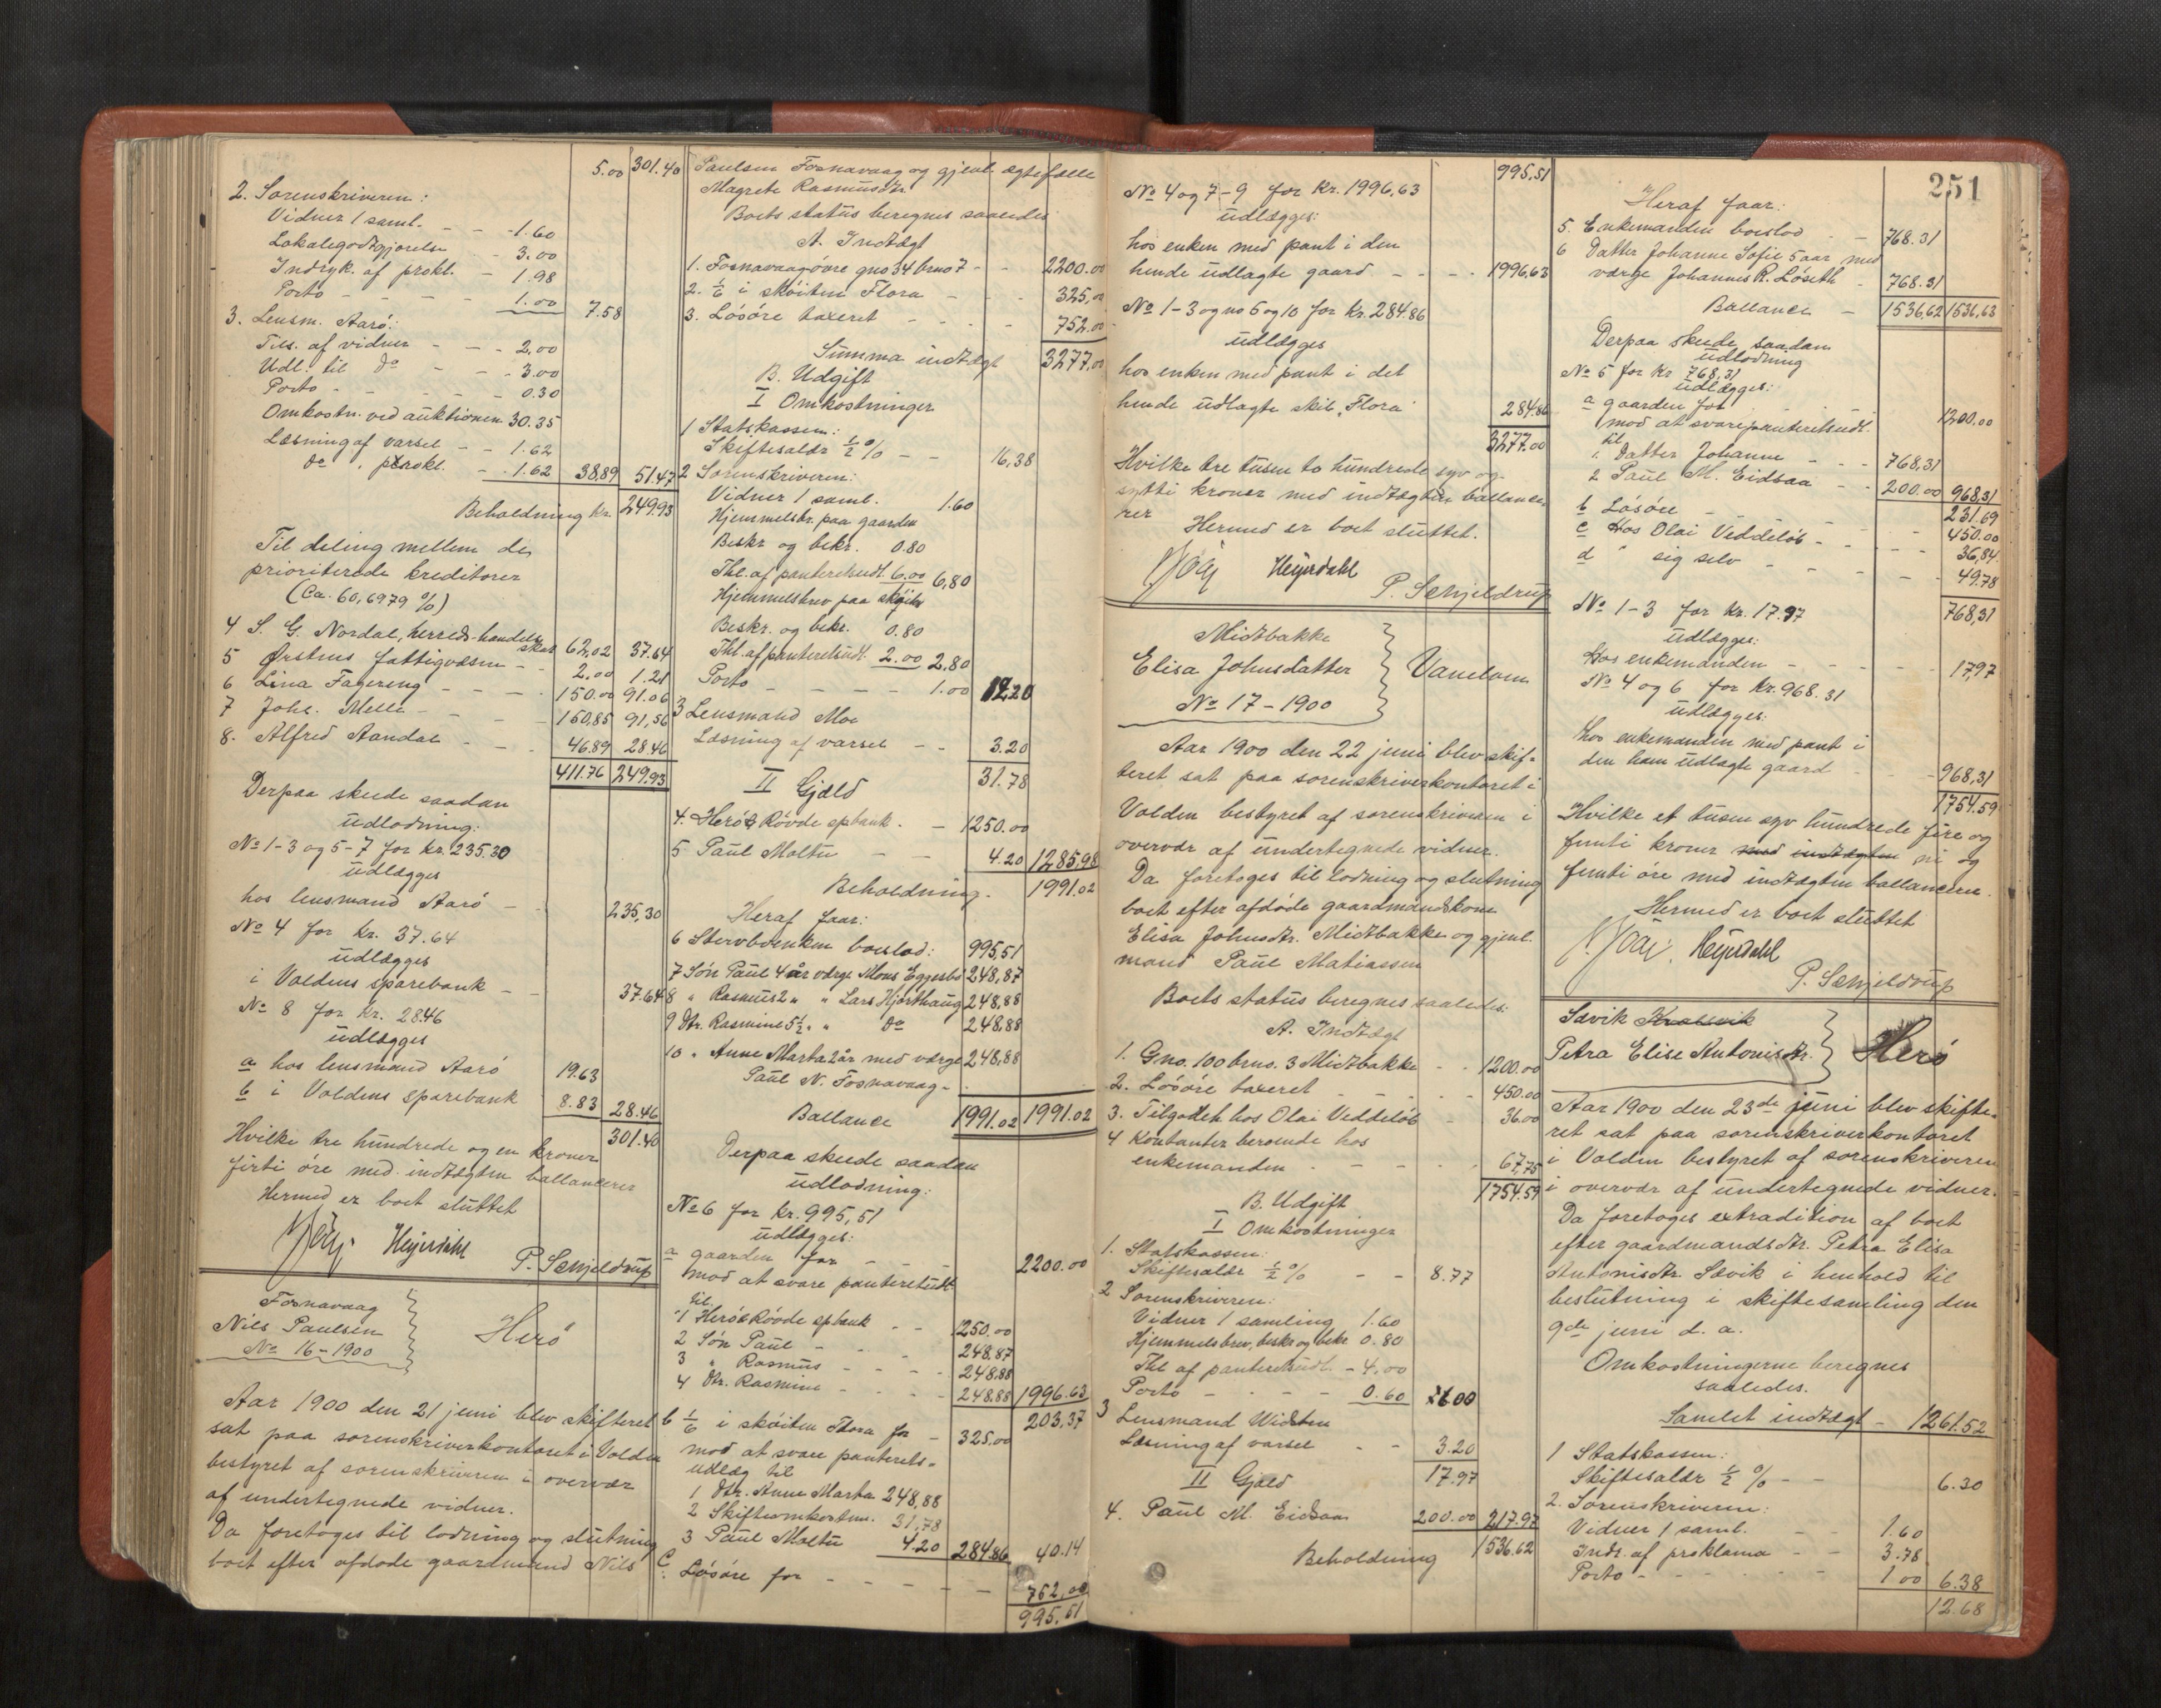 5.00 301.40
2. Sorenskriveren:
Vidner 1 saml. - - - 1.60
Lokalegodtgjørelse - 3.00
Indryk. af prokl. - 1.98
Porto - - - - 1.00 7.58
3. Lensm. Aarø:
Tils. af vidner - - - 2.00
Udl. til do - - - 3.00
Porto - - - - - 0.30
Omkostn. ved auktionen 30.35
Læsning af varsel - - 1.62
do " prokl. - - 1.62 38,89 51.47
Beholdning kr. 249.93
Til deling mellem de
prioriterede kreditorer
(Ca. 60,6979 %)
4 S. G. Nordal, herreds-handels
skat 62,02 37.64
5 Ørstens fattigvæsen - - 2.00 1.21
6 Lina Fagereng - - - - 150.00 91.06
7 Johs. Melle - - - - 150,85 91,56
8. Alfred Aandal - - - 46.89 28.46
411.76 249.93
Derpaa skede saadan
udlodning:
No 1-3 og 5-7 for kr. 235.30
udlægges
hos lensmand Aarø - - 235,30
No 4 for kr. 37.64
udlægges
i Voldens sparebank - - 37.64
No 8 for kr. 28.46
udlægges
a hos lensmand Aarø 19.63
b i Voldens sparebank 8.83 28.46
301.40
Hvilke tre hundrede og en kroner
førti øre med indtægten ballancerer
Hermed er boet sluttet
Heyerdahl
P. Schjeldrup
Fosnavaag
Nils Paulsen
No 16-1900
Herø
Aar 1900 den 21 juni blev skifteret
sat paa sorenskriverkontoret i Volden
bestyret af sorenskriveren i overvær
af undertegnede vidner.
Da foretoges til lodning og slutning
boet efter afdøde gaardmand Nils
Paulsen Fosnavaag og gjenl. ægtefælle
Magrete Rasmusdtr.
Boets status beregnes saaledes
A. Indtægt
1. Fosnavaag øvre gno 34 brno 7 - - 2200.00
2. 1/6 i skøiten Flora - - - 325,00
3. Løsøre taxeret - - - - 752.00
Summa indtægt 3277,00
B. Udgift
I Omkostninger
1 Statskassen:
Skiftesaldr 1/2 % - - 16,38
2 Sorenskriveren:
Vidner 1 saml. 1.60
Hjemmelsbr. paa gaarden
Beskr og bekr. 0.80
Thl. af panteretsudl. 6.00 6,80
Hjemmelsbrev paa skøiten
Beskr. og bekr. 0.80
Thl. af panteretsudl. 2.00 2,80
Porto - - - - - 1.00 12.20
3 Lensmand Moe
Læsning af varsel - - 3.20
31.78
II Gjæld
4. Herø & Røvde spbank. - 1250.00
5 Paul Moltu - - 4.20 1285,98
Beholdning. 1991.02
Heraf faar:
6 Stervboenken boeslod: 995,51
7 Søn Paul 4 år værge Mons Eggesbø 248,87
8 " Rasmus 2 " " Lars Hjørthaug 248,88
9 Dtr. Rasmine 5½ " " do 248.88
10 " Anne Marta 2 år med værge 248,88
Paul N. Fosnavaag -
Ballance 1991.02 1991.02
Derpaa skede saadan
udlodning:
No 6 for kr. 995,51
udlægges:
a gaarden for - - - 2200.00
mod at svare panteretsudl.
til
1 Herø & Røvde spbank - - 1250.00
2 Søn Paul - - - 248.87
3 " Rasmus - - - 248.88
4 Dtr. Rasmine - - - 248.88 1996.63
203.37
b 1/6 i skøiten Flora for - 325,00
mod at svare panterets-
udlæg til
1 Dtr. Anne Marta 248,88
2 Skifteomkostn. 31,78
3 Paul Moltu 4.20 284.86 40.14
c. Løsøre for - - - - - - 752,00
995.51
No 4 og 7-9 for kr. 1996,63 995,51
udlægges:
hos enken med pant i den
hende udlagte gaard - - - - 1996,63
No 1-3 og no 5 og 10 for kr. 284.86
udlægges
hos enken med pant i det
hende udlagte skib "Flora" 284.86
3277.00
Hvilke tre tusen to hundrede syv og
sytti kroner med indtægten ballance-
rer
Hermed er boet sluttet.
Heyerdahl
P. Schjeldrup
Midtbakke
Elisa Johnsdatter
No 17-1900
Vanelven
Aar 1900 den 22 juni blev skif-
teret sat paa sorenskriverkontoret i
Volden bestyret af sorenskriveren i
overvær af undertegnede vidner.
Da foretoges til lodning og slutning
boet efter afdøde gaardmandskone
Elisa Johnsdtr. Midtbakke og gjenl.
mand Paul Matiassen
Boets status beregnes saaledes:
A. Indtægt
1. Gno. 100 brno. 3 Midtbakke - - 1200.00
2. Løsøre taxeret - - - - 450.00
3. Tilgodeh. hos Olai Veddeløb - 36.00
4 Kontanter beroende hos
enkemanden - - - - - 67,75
1754.59
B. Udgift
I Omkostninger
1. Statskassen:
Skiftesaldr 1/2 % - - 8.77
2 Sorenskriveren:
Vidner 1 samling 1.60
Hjemmelsbrev, beskr og bekr 0.80
Thl. af panteretsudl. - 4.00
Porto - - - - 0.60 6.00
3 Lensmand Widsten
Læsning af varsel - - 3.20
17.97
II Gjæld
4. Paul M. Eidsaa 200.00 217.97
Beholdning 1536.62
251
Heraf faar:
5. Enkemanden boeslod - - 768.31
6 Datter Johanne Sofie 5 aar med
værge Johannes R. Løseth - 768.31
Ballance - 1536,62 1536,62
Derpaa skede saadan
udlodning
No 5 for kr 768,31
udlægges:
a gaarden for - - - 1200.00
mod at svare panteretsudl.
til
1. Datter Johanne - - - 768,31
2 Paul M. Eidsaa - - 200.00 968,31
231.69
b Løsøre - - - - - 450.00
c Hos Olai Veddeløb - - - - 36,84
d " sig selv - - - - - 49.78
768,31
No 1-3 for kr. 17.97
udlægges:
Hos enkemanden - - - - - 17,97
No 4 og 6 for kr. 968.31
udlægges:
hos enkemanden med pant i
den ham udlagte gaard - - 968,31
1754.59
Hvilke et tusen syv hundrede fire og
femti kroner med indtægten ni og
femti øre med indtægten ballancerer.
Hermed er boet sluttet
Heyerdahl
P. Schjeldrup
Sævik
Petra Elise Antonisdtr.
Herø
Aar 1900 den 23de juni blev skifte-
ret sat paa sorenskriverkontoret
i Volden bestyret af sorenskriveren
i overvær af undertegnede vidner.
Da foretoges extradition af boet
efter gaardmandsdtr. Petra Elisa
Antonisdtr. Sævik i henhold til
beslutning i skiftesamling den
9de juni d. a.
Omkostningerne beregnes
saaledes.
Samlet indtægt - 1261.52
1 Statskassen:
Skiftesaldr 1/2 % - - 6.30
2. Sorenskriveren:
Vidner 1 saml. - - 1.60
Indr. af proklama - - 3.78
Porto - - - - - - 1.00 6.38
12.68